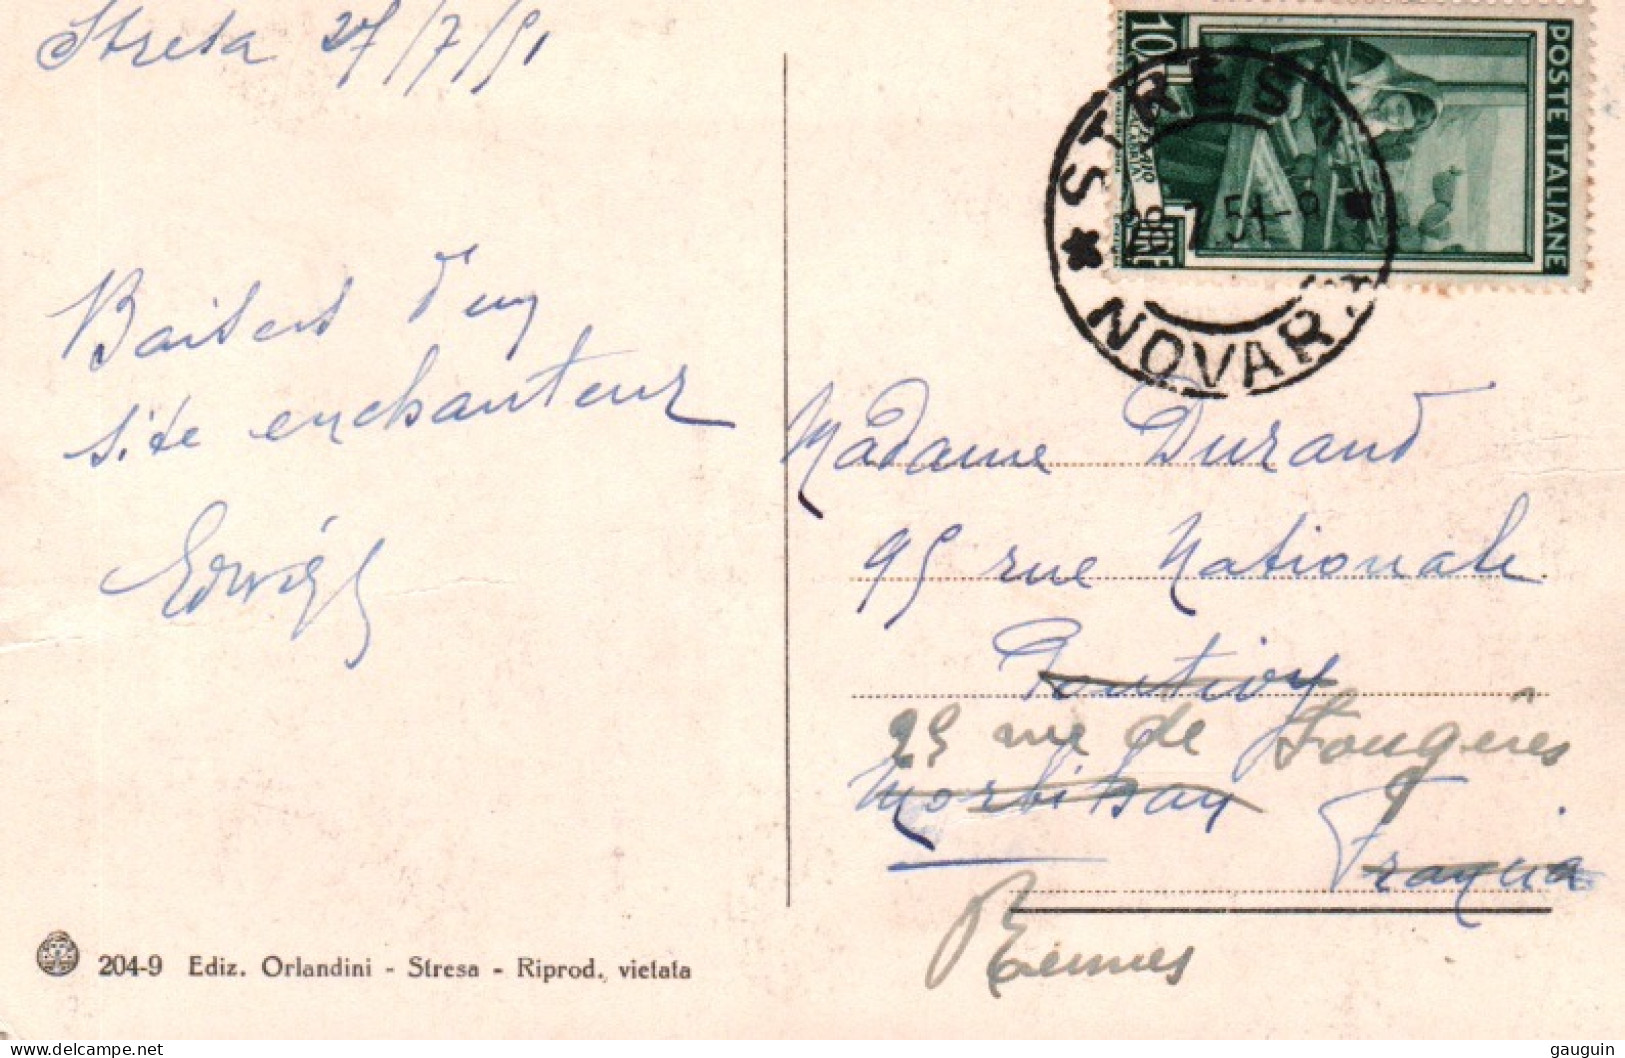 Stresa 27/7/51
10
POSTE ITALIANE
LIRE
STRESA
28.7.51-9
* NOVARA
Baisers d'un
site enchanteur
Edwige
Madame Durand
95 rue Nationale
Pontivy
25 rue de Fougères
Morbihan
Francia
Rennes
204-9 Ediz. Orlandini - Stresa - Riprod. vietata
delcampe.net
gauguin